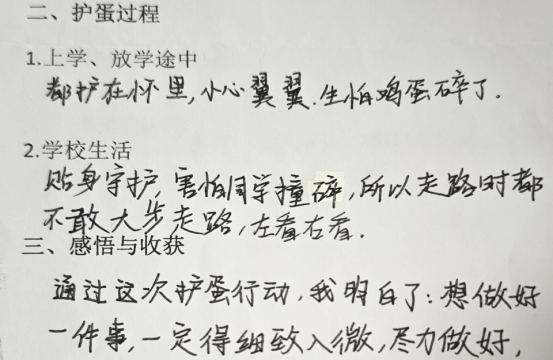 二、护蛋过程
1.上学、放学途中
都护在怀里,小心翼翼.生怕鸡蛋碎了.
2.学校生活
贴身守护,害怕同学撞碎,所以走路时都
不敢大步走路,左看右看.
三、感悟与收获
通过这次护蛋行动,我明白了:想做好
一件事,一定得细致入微,尽力做好,